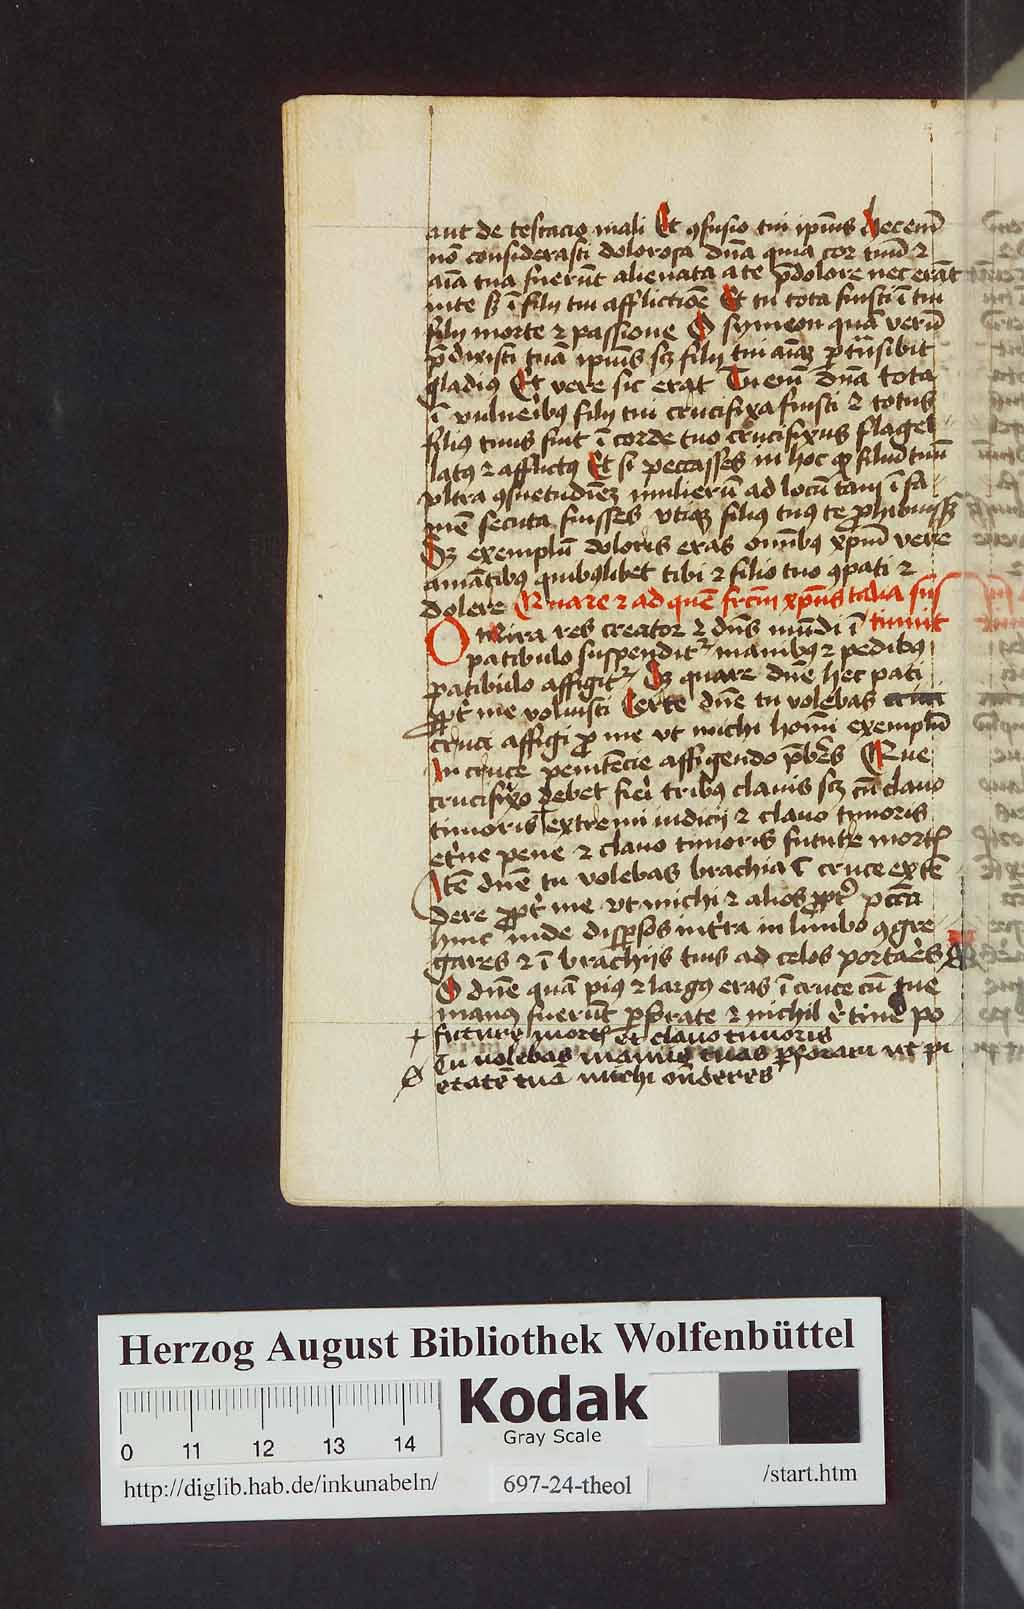 aut de testacio mali Et ꝯfusio tui ipīus hec em̄
nō considerasti doloroſa dn̄a quia cor tuū ⁊
aīa tua fuerūt alienata a te p̄ dolore nec erāt
in te sꝫ ī filij tui afflictiōe Et tu tota fuisti ī tui
filij morte ⁊ passione O symeon quā verū
p̄dixisti tuā ipīus scꝫ filij tui aīaꝫ ꝑtn̄sibit
gladiꝰ Et vere sic erat Tu em̄ dn̄a tota
ī vulneribꝰ filij tui crucifixa fuisti ⁊ totus
filiꝰ tuus fuit ī corde tuo crucifixus flagel
latꝰ ⁊ afflictꝰ Et si peccasses in hoc ꝙ filiū tuū
vltra ꝯsuetudīeꝫ mulierū ad locū tam īfa
mē secuta fuisses vtiqꝫ filiꝰ tuꝰ te ꝓhibuissꝫ
Sꝫ exemplū doloris eras om̄ibꝰ xp̄m vere
amātibꝰ quibꝰlibet tibi ⁊ filio tuo ꝯpati ⁊
dolere Quare ⁊ ad quē frc̄m xp̄us talia sus
O mira res creator ⁊ dn̄s mūdi ī tinuit
patibulo suspendit᷑ manibꝰ ⁊ pedibꝰ
patibulo affigit᷑ Sꝫ quare dn̄e hec pati
ꝓpt̄ me voluisti Certe dn̄e tu volebas
cruci affigi ꝓ me vt michi homī exemplū
in cruce penitēcie affigendo p̄bēs Que
crucifixo debet fieri tribꝰ clauis scꝫ cū clauo
timoris extremi iudicij ⁊ clauo timoris
et̄ne pene ⁊ clauo timoris future mortꝭ
Itē dn̄e tu volebas brachia ī cruce extē
dere ꝓpt̄ me vt michi ⁊ alios ꝓpt̄ pccā
hinc inde disꝑsos int̄ra in limbo ꝯgre
gares ⁊ ī brachijs tuis ad celos portares
O dn̄e quā piꝰ ⁊ largꝰ eras ī cruce cū tue
manꝰ fuerūt ꝑforate ⁊ nichil retinē po
+ future mortꝭ et clauo timoris
Tu volebas manus tuas ꝑforari vt pi
etatē tuā michi on̄deres
Herzog August Bibliothek Wolfenbüttel
0 11 12 13 14
Kodak
Gray Scale
http://diglib.hab.de/inkunabeln/ 697-24-theol /start.htm